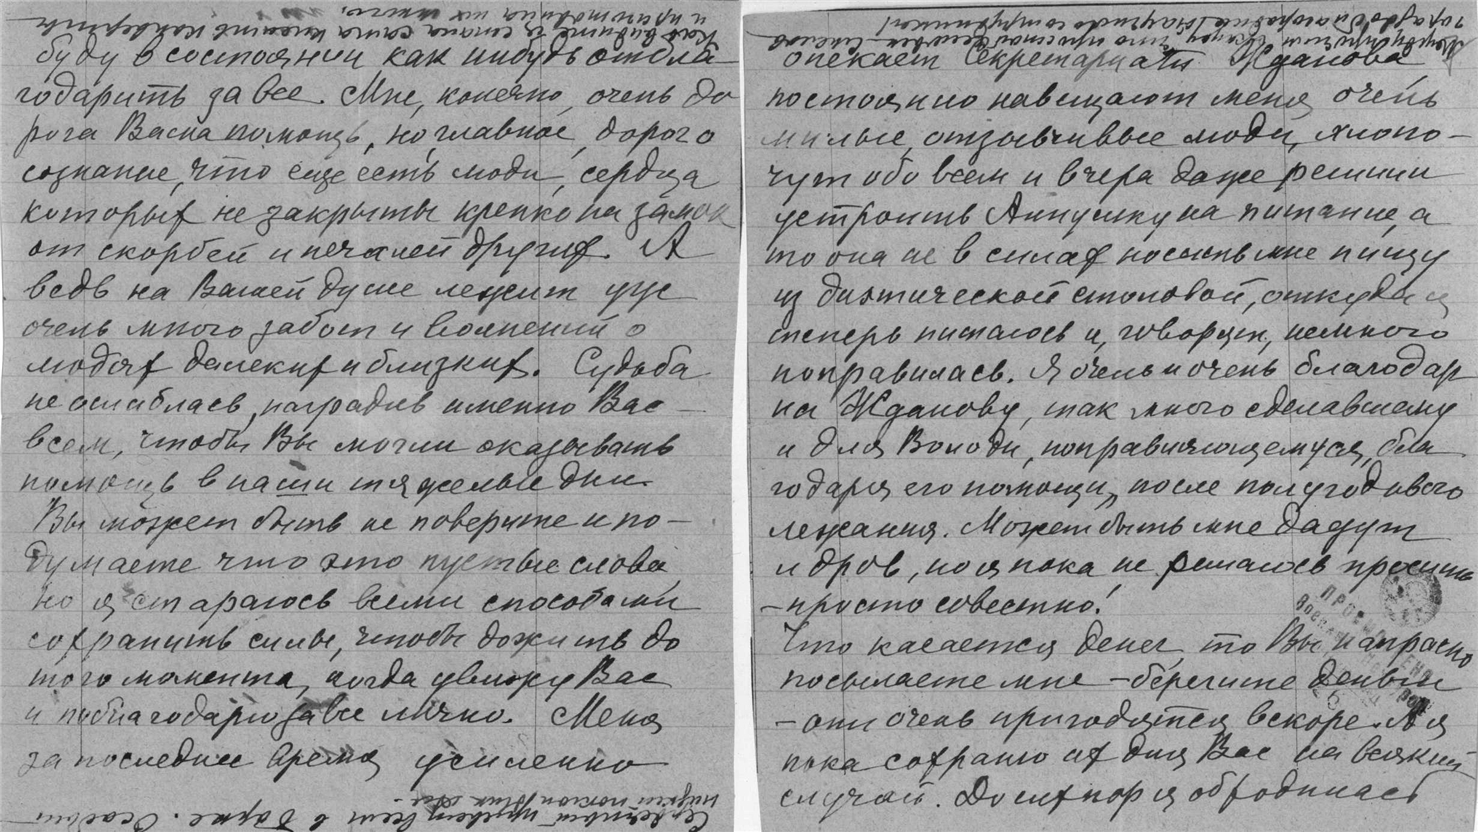 буду в состоянии как нибудь отбла
годарить за все. Мне, конечно, очень до
рога Ваша помощь, но, главное, дорого
сознание, что еще есть люди, сердца
которых не закрыты крепко на замок
от скорбей и печалей других. А
ведь на Вашей душе лежит уже
очень много забот и волнений о
людях далеких и близких. Судьба
не ошиблась, наградив именно Вас
всем, чтобы Вы могли оказывать
помощь в наши тяжелые дни.
Вы может быть не поверите и по-
думаете что это пустые слова,
но я стараюсь всеми способами
сохранить силы, чтобы дожить до
того момента, когда увижу Вас
и поблагодарю за все лично. Меня
за последнее время усиленно
Сердечный привет всем в доме.
опекает Секретариат Жданова
постоянно навещают меня очень
милые, отзывчивые люди, хлопо-
чут обо всем и вчера даже решили
устроить Аннушку на питание, а
то она не в силах носить мне пищу
из диэтической столовой, откуда я
теперь питаюсь и, говорят, немного
поправилась. Я очень и очень благодар
на Жданову, так много сделавшему
и для Володи, поправляющемуся, бла
годаря его помощи, после полугодового
лежания. Может быть мне дадут
и дров, но я пока не решаюсь просить
- просто совестно!
Что касается денег, то Вы напрасно
посылаете мне - берегите деньги
- они очень пригодятся вскоре. А я
пока сохраню их для Вас на всякий
случай. До сих пор я обходилась